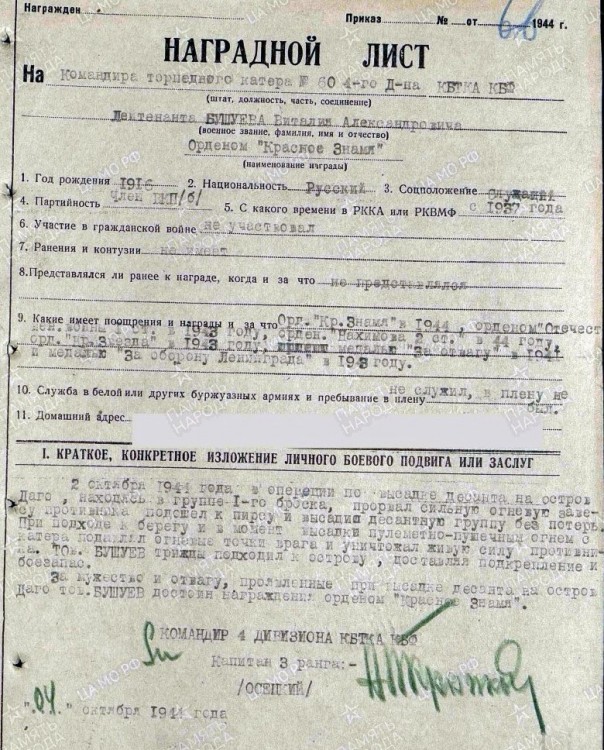 Награжден
Приказ № от 6/8 1944 г.
НАГРАДНОЙ ЛИСТ
На Командира торпедного катера № 60 4-го Д-на КБТКА КБФ
(штат, должность, часть, соединение)
Лейтенанта БУШУЕВА Виталия Александровича
(военное звание, фамилия, имя и отчество)
Орденом "Красное Знамя"
(наименование награды)
1. Год рождения 1916 2. Национальность Русский 3. Соцположение Служащий
4. Партийность Член ВКП/б/ 5. С какого времени в РККА или РКВМФ с 1937 года
6. Участие в гражданской войне не участвовал
7. Ранения и контузии не имеет
8. Представлялся ли ранее к награде, когда и за что не представлялся
9. Какие имеет поощрения и награды и за что Орд. "Кр.Знамя" в 1944, орденом "Отечест
вен. войны 1943 году, орден. Нахимова 2 ст." в 44 году,
орд. "Кр.Звезда" в 1943 году, медалью "За отвагу" в 1944
и медалью "За оборону Ленинграда" в 1943 году.
10. Служба в белой или других буржуазных армиях и пребывание в плену не служил, в плену не
был.
11. Домашний адрес
I. КРАТКОЕ, КОНКРЕТНОЕ ИЗЛОЖЕНИЕ ЛИЧНОГО БОЕВОГО ПОДВИГА ИЛИ ЗАСЛУГ
2 октября 1944 года в операции по высадке десанта на остров
Даго, находясь в группе I-го броска, прорвал сильную огневую заве-
су противника подошел к пирсу и высадил десантную группу без потерь.
При подходе к берегу и в момент высадки пулеметно-пушечным огнем с
катера подавлял огневые точки врага и уничтожал живую силу противни-
ка. Тов. БУШУЕВ трижды подходил к острову, доставляя подкрепление и
боезапас.
За мужество и отвагу, проявленные при высадке десанта на остров
Даго тов. БУШУЕВ достоин награждения орденом "Красное Знамя".
КОМАНДИР 4 ДИВИЗИОНА КБТКА КБФ
Капитан 3 ранга:-
/ОСЕЦКИЙ/
"04." октября 1944 года